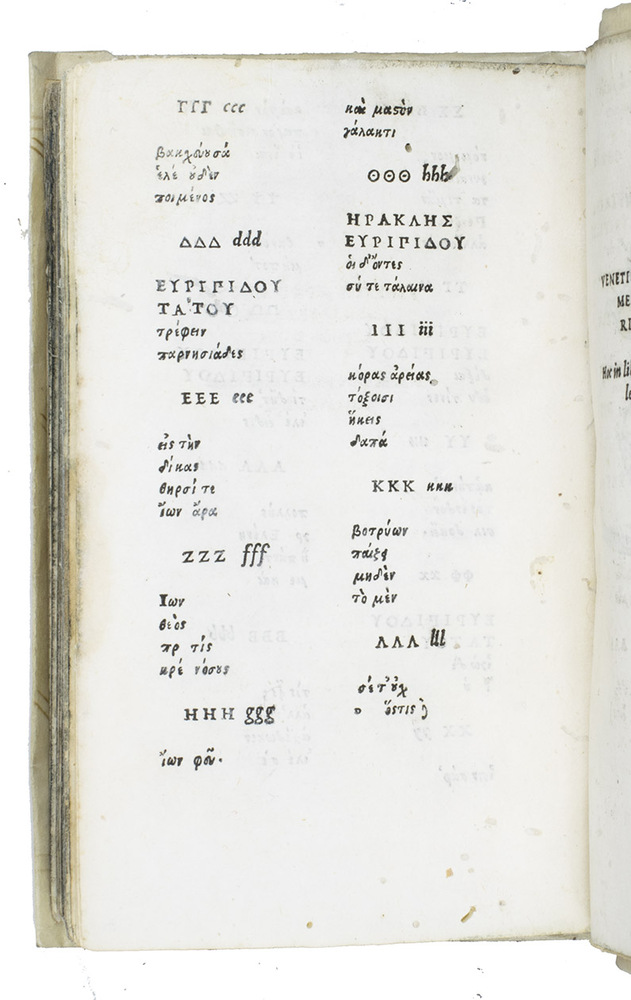 ΓΓΓ ccc
βακχεύουσά
ἑλέ οὐδὲν
ποιμένος
ΔΔΔ ddd
ΕΥΡΙΠΙΔΟΥ
ΤΑ ΤΟΥ
τρέφειν
παρνησιάδες
ΕΕΕ eee
εἰς τὴν
δίκας
θηρσί τε
ἴων ἄρα
ΖΖΖ fff
Ιων
θεὸς
πρ τίς
κρέ νόσους
ΗΗΗ ggg
ἴων φοῦ·
καὶ μαστὸν
γάλακτι
ΘΘΘ hhh
ΗΡΑΚΛΗΣ
ΕΥΡΙΠΙΔΟΥ
οἱ δόντες
σύ τε τάλαινα
ΙΙΙ iii
κόρας ἀρείας
τόξοισι
ἥκεις
δαπά
ΚΚΚ kkk
βοτρύων
παῖξε
μηδὲν
τὸ μὲν
ΛΛΛ lll
σέ τύχ
ο ὥστις
VENETI
ME
RI
Hoc in li
le